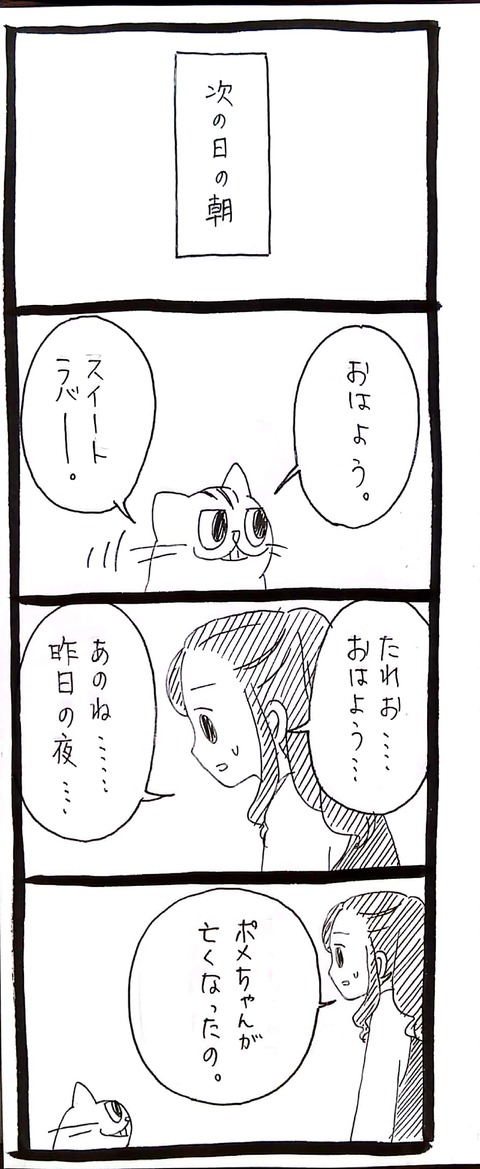 次の日の朝
おはよう。
スイート
ラバー。
たれお……
おはよう…
あのね……
昨日の夜…
ポメちゃんが
亡くなったの。